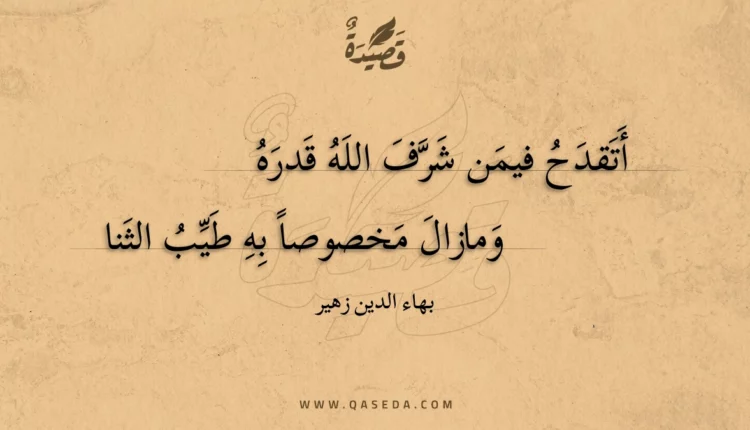 قَصِيدَةٌ
أَتَقدَحُ فيمَن شَرَّفَ اللَهُ قَدرَهُ
وَمازالَ مَخصوصاً بِهِ طَيِّبُ الثَنا
بهاء الدين زهير
WWW.QASEDA.COM